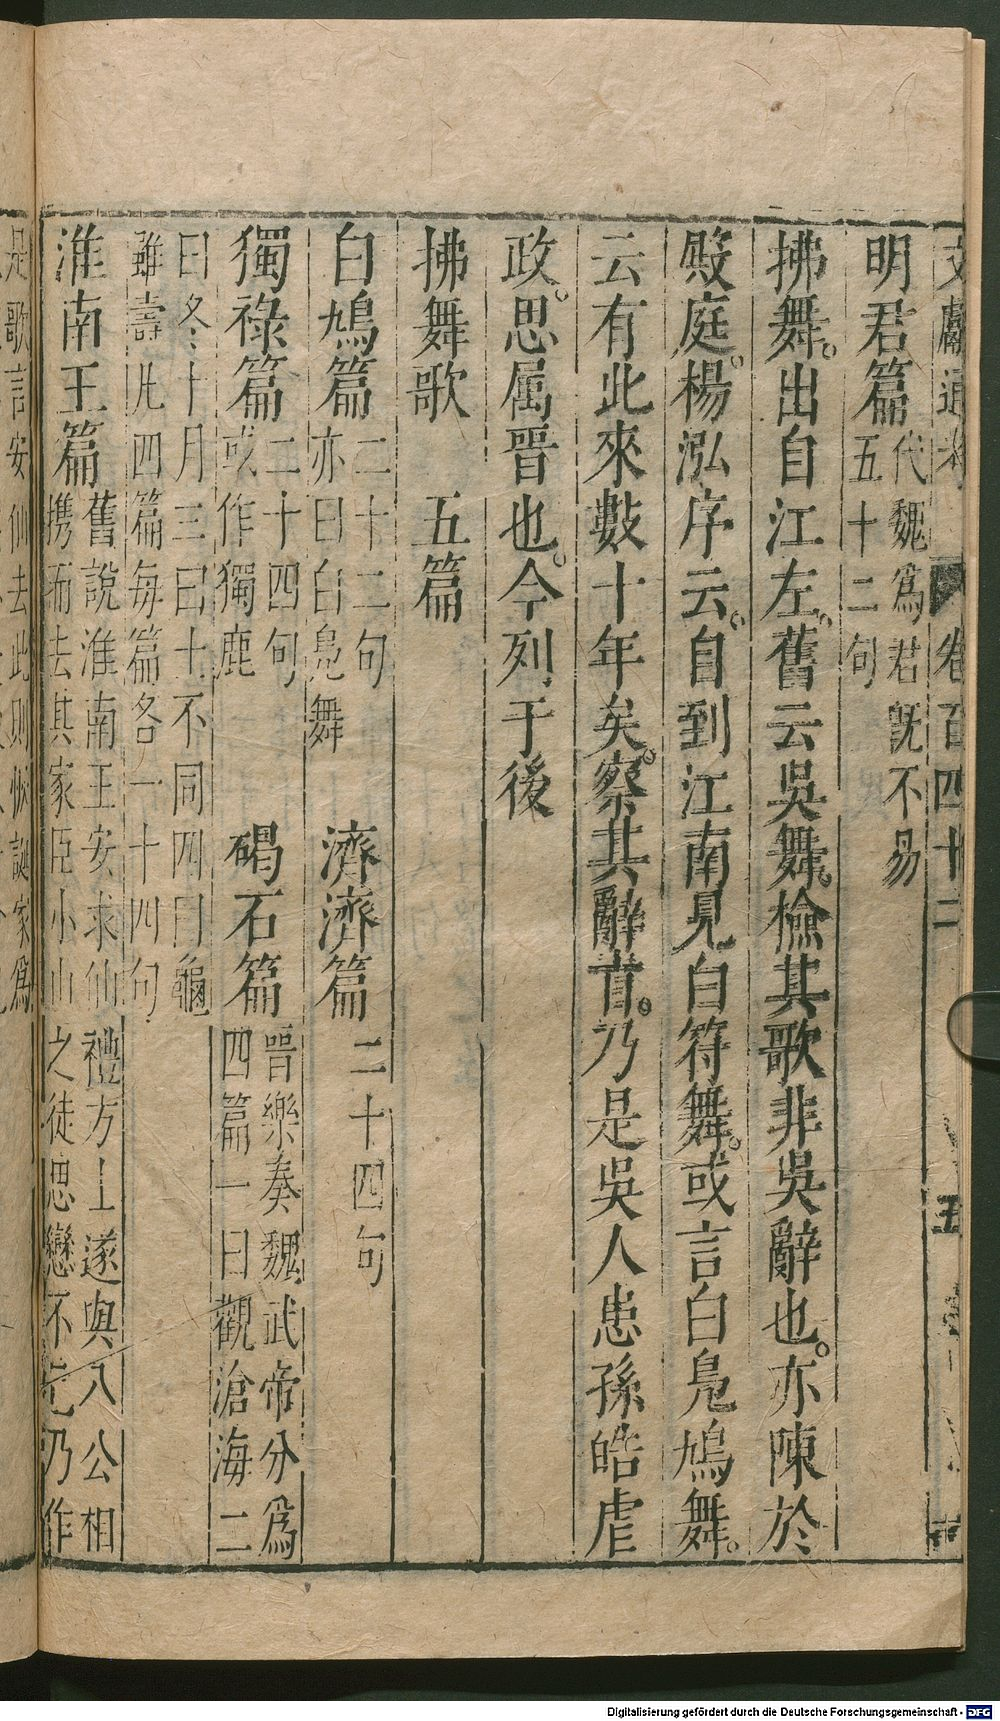 文獻通考 卷百四十二 五
明君篇 代魏爲君既不易 五十二句
拂舞。出自江左。舊云吳舞。檢其歌非吳辭也。亦陳於
殿庭。楊泓序云。自到江南見白符舞。或言白鳧鳩舞。
云有此來數十年矣。察其辭㫖。乃是吳人患孫皓虐
政。思属晉也。今列于後
拂舞歌 五篇
白鳩篇 二十二句 亦曰白鳧舞 濟濟篇 二十四句
獨祿篇 二十四句 或作獨鹿 碣石篇 晉樂奏魏武帝分爲 四篇一曰觀滄海二
曰冬十月三曰土不同四曰龜
雖壽凡四篇每篇各一十四句
淮南王篇 舊說淮南王安求仙禮方士遂與八公相 携而去其家臣小山之徒思戀不已乃作
是歌言安仙去此則恢誕家爲
Digitalisierung gefördert durch die Deutsche Forschungsgemeinschaft - DFG